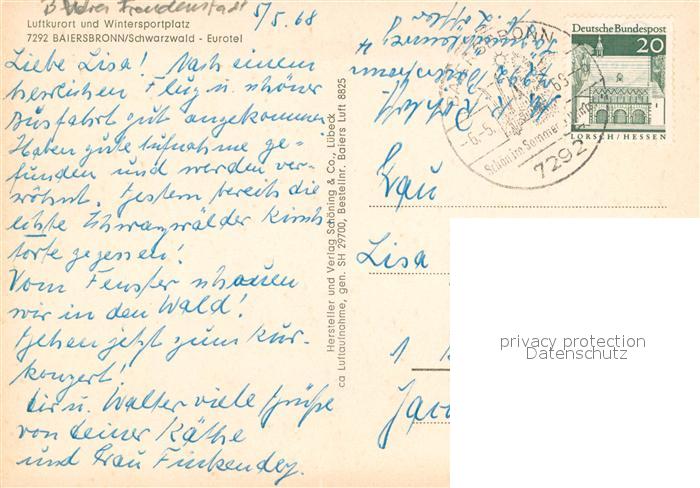 5/5.68
Luftkurort und Wintersportplatz
7292 BAIERSBRONN/Schwarzwald - Eurotel
Liebe Lisa! Nach einem
herrlichen Flug u. schöner
Ausfahrt gut angekommen
Haben gute Aufnahme ge-
funden und werden ver-
wöhnt. Gestern bereits die
echte Schwarzwälder Kirsch
torte gegessen!
Vom Fenster schauen
wir in den Wald!
Gehen jetzt zum Kur-
konzert!
Dir u. Walter viele Grüße
von deiner Käthe
und Frau Finkendey.
Hersteller und Verlag Schöning & Co., Lübeck
ca Luftaufnahme, gen. SH 29700, Bestellnr. Baiers Luft 8825
Deutsche Bundespost
20
LORSCH/HESSEN
BAIERSBRONN
-6.-5.
68-
Schön im Sommer
7292
Frau
Lisa
1
privacy protection
Datenschutz